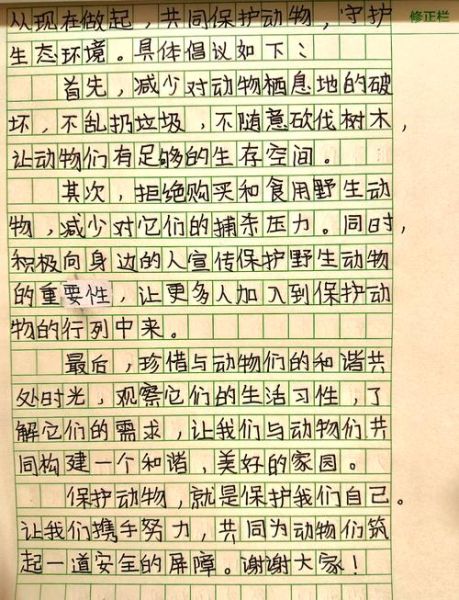 从现在做起，共同保护动物，守护
修正栏
生态环境。具体倡议如下：
首先，减少对动物栖息地的破
坏，不乱扔垃圾，不随意砍伐树木，
让动物们有足够的生存空间。
其次，拒绝购买和食用野生动
物，减少对它们的捕杀压力。同时，
积极向身边的人宣传保护野生动物
的重要性，让更多人加入到保护动
物的行列中来。
最后，珍惜与动物们的和谐共
处时光，观察它们的生活习性，了
解它们的需求，让我们与动物们共
同构建一个和谐，美好的家园。
保护动物，就是保护我们自己。
让我们携手努力，共同为动物们筑
起一道安全的屏障。谢谢大家！